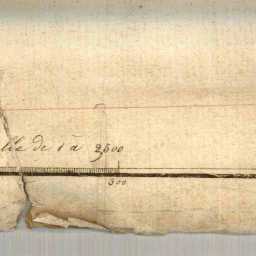 lle de 1 à 2500
300